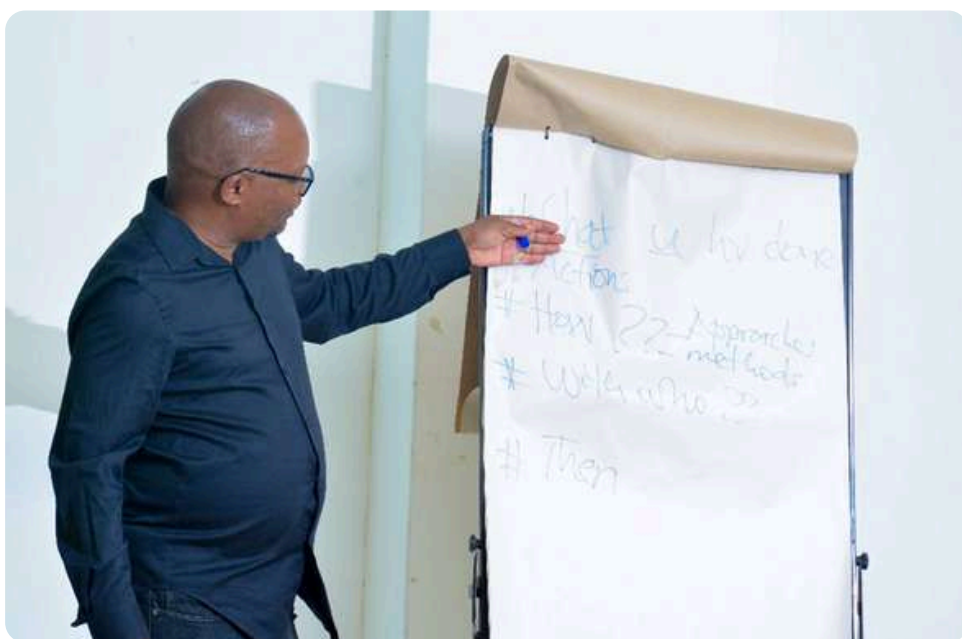 # What we hv done
# Actions
# How ?? - Approaches
- methods
# With who ??
# Then